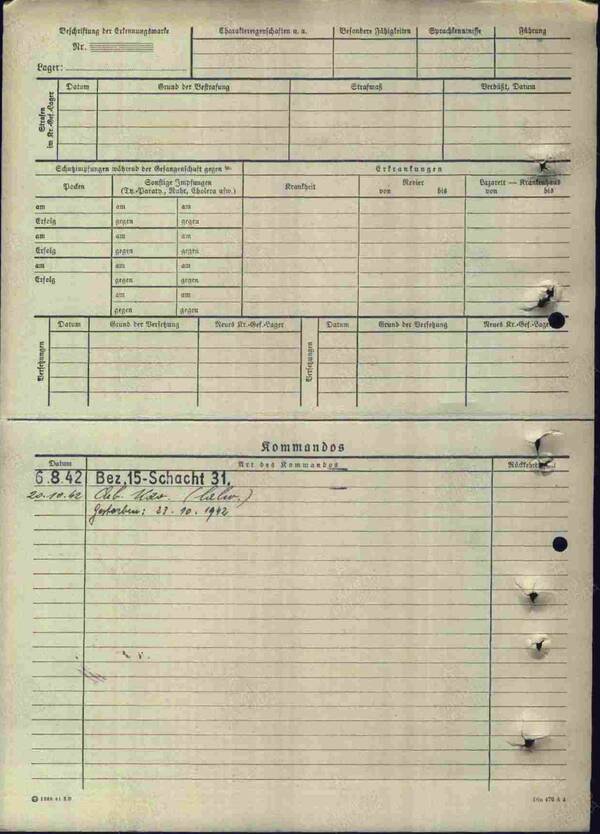 Beschriftung der Erkennungsmarke
Nr.
Lager:
Charaktereigenschaften u. a.
Besondere Fähigkeiten
Sprachkenntnisse
Führung
Strafen im Kr.-Gef.-Lager
Datum
Grund der Bestrafung
Strafmaß
Verbüßt, Datum
Schutzimpfungen während der Gefangenschaft gegen
Erkrankungen
Pocken
Sonstige Impfungen
(Ty.-Paraty., Ruhr, Cholera usw.)
Krankheit
Revier
von bis
Lazarett — Krankenhaus
von bis
am am am
Erfolg gegen gegen
am am am
Erfolg gegen gegen
am am am
Erfolg gegen gegen
am am
gegen gegen
Versetzungen
Datum
Grund der Versetzung
Neues Kr.-Gef.-Lager
Versetzungen
Datum
Grund der Versetzung
Neues Kr.-Gef.-Lager
Kommandos
Datum
Art des Kommandos
6.8.42 Bez.15-Schacht 31.
20.10.42
Gestorben: 23.10.1942